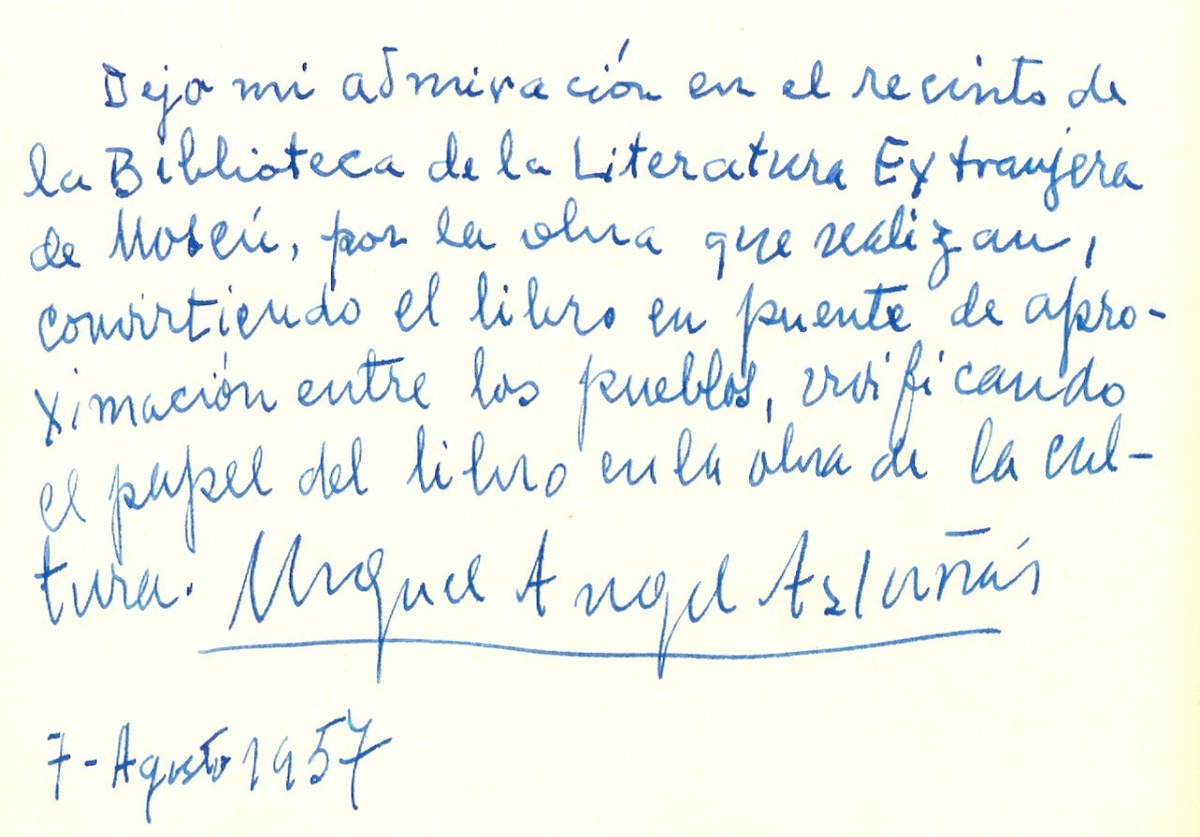 Dejo mi admiración en el recinto de
la Biblioteca de la Literatura Extranjera
de Moscú, por la obra que realizan,
convirtiendo el libro en puente de apro-
ximación entre los pueblos, vivificando
el papel del libro en la obra de la cul-
tura. Miguel Angel Asturias
7 - Agosto 1957